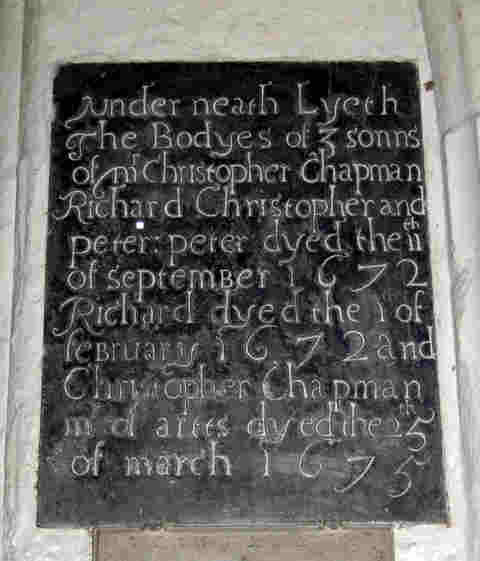 Under neath Lyeth
The Bodyes of 3 sonns
of Mr Christopher Chapman
Richard Christopher and
peter: peter dyed the 11th
of september 1672
Richard dyed the 1 of
february 1672 and
Christopher Chapman
mr of artes dyed the 25th
of march 1675